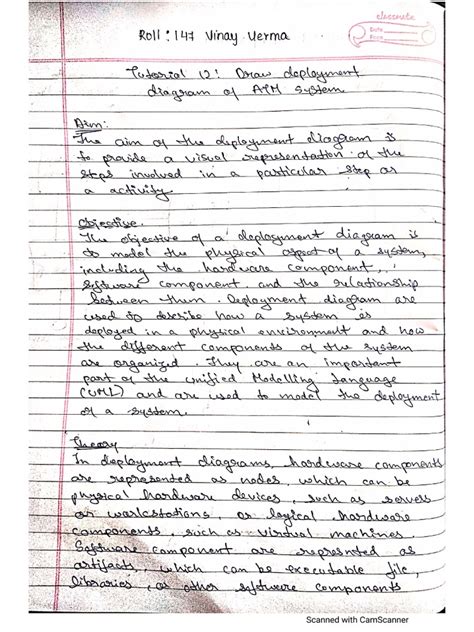 classmate
Date
Page
Roll : 147 Vinay Verma
Tutorial 12: Draw deployment
diagram of ATM system
Aim:
The aim of the deployment diagram is
to provide a visual representation of the
steps involved in a particular step or
a activity.
Objective.
The objective of a deployment diagram is
to model the physical aspect of a system,
including the hardware component,
software component, and the relationship
between them. Deployment diagram are
used to describe how a system is
deployed in a physical environment and how
the different components of the system
are organized. They are an important
part of the Unified Modelling Language
(UML) and are used to model the deployment
of a system.
Theory
In deployment diagrams, hardware components
are represented as nodes, which can be
physical hardware devices, such as servers
or workstations, or logical hardware
components, such as virtual machines.
Software component are represented as
artifacts, which can be executable file,
libraries, or other software components
Scanned with CamScanner